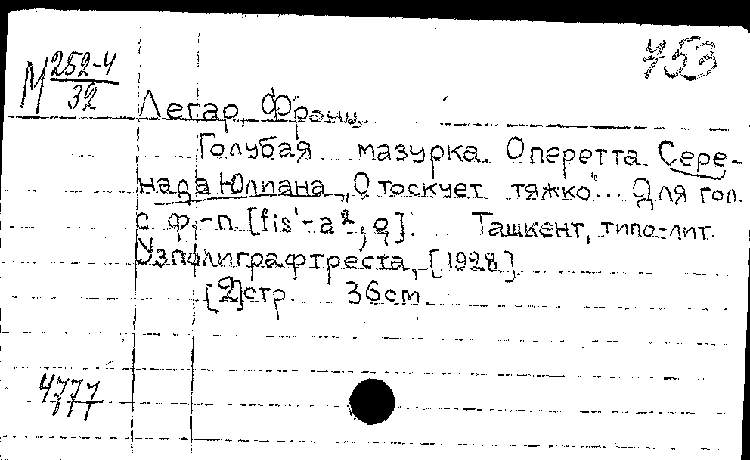 753
М 252-4
32
Легар, Франц
Голубая мазурка. Оперетта. Сере-
нада Юлиана „О тоскует тяжко"... Для гол.
с ф.-п. [fis'-a²; ]. Ташкент, типо-лит.
Узполиграфтреста, [1928].
[2]стр. 36см.
4777